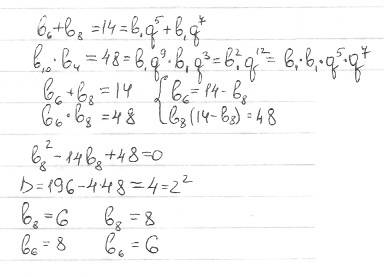 b₆+b₈=14=b₁q⁵+b₁q⁷
b₁₀·b₄=48=b₁q⁹·b₁q³=b₁²q¹²=b₁·b₁·q⁵·q⁷
b₆+b₈=14 { b₆=14-b₈
b₆·b₈=48 b₈(14-b₈)=48
b₈²-14b₈+48=0
D=196-4·48=4=2²
b₈=6 b₈=8
b₆=8 b₆=6